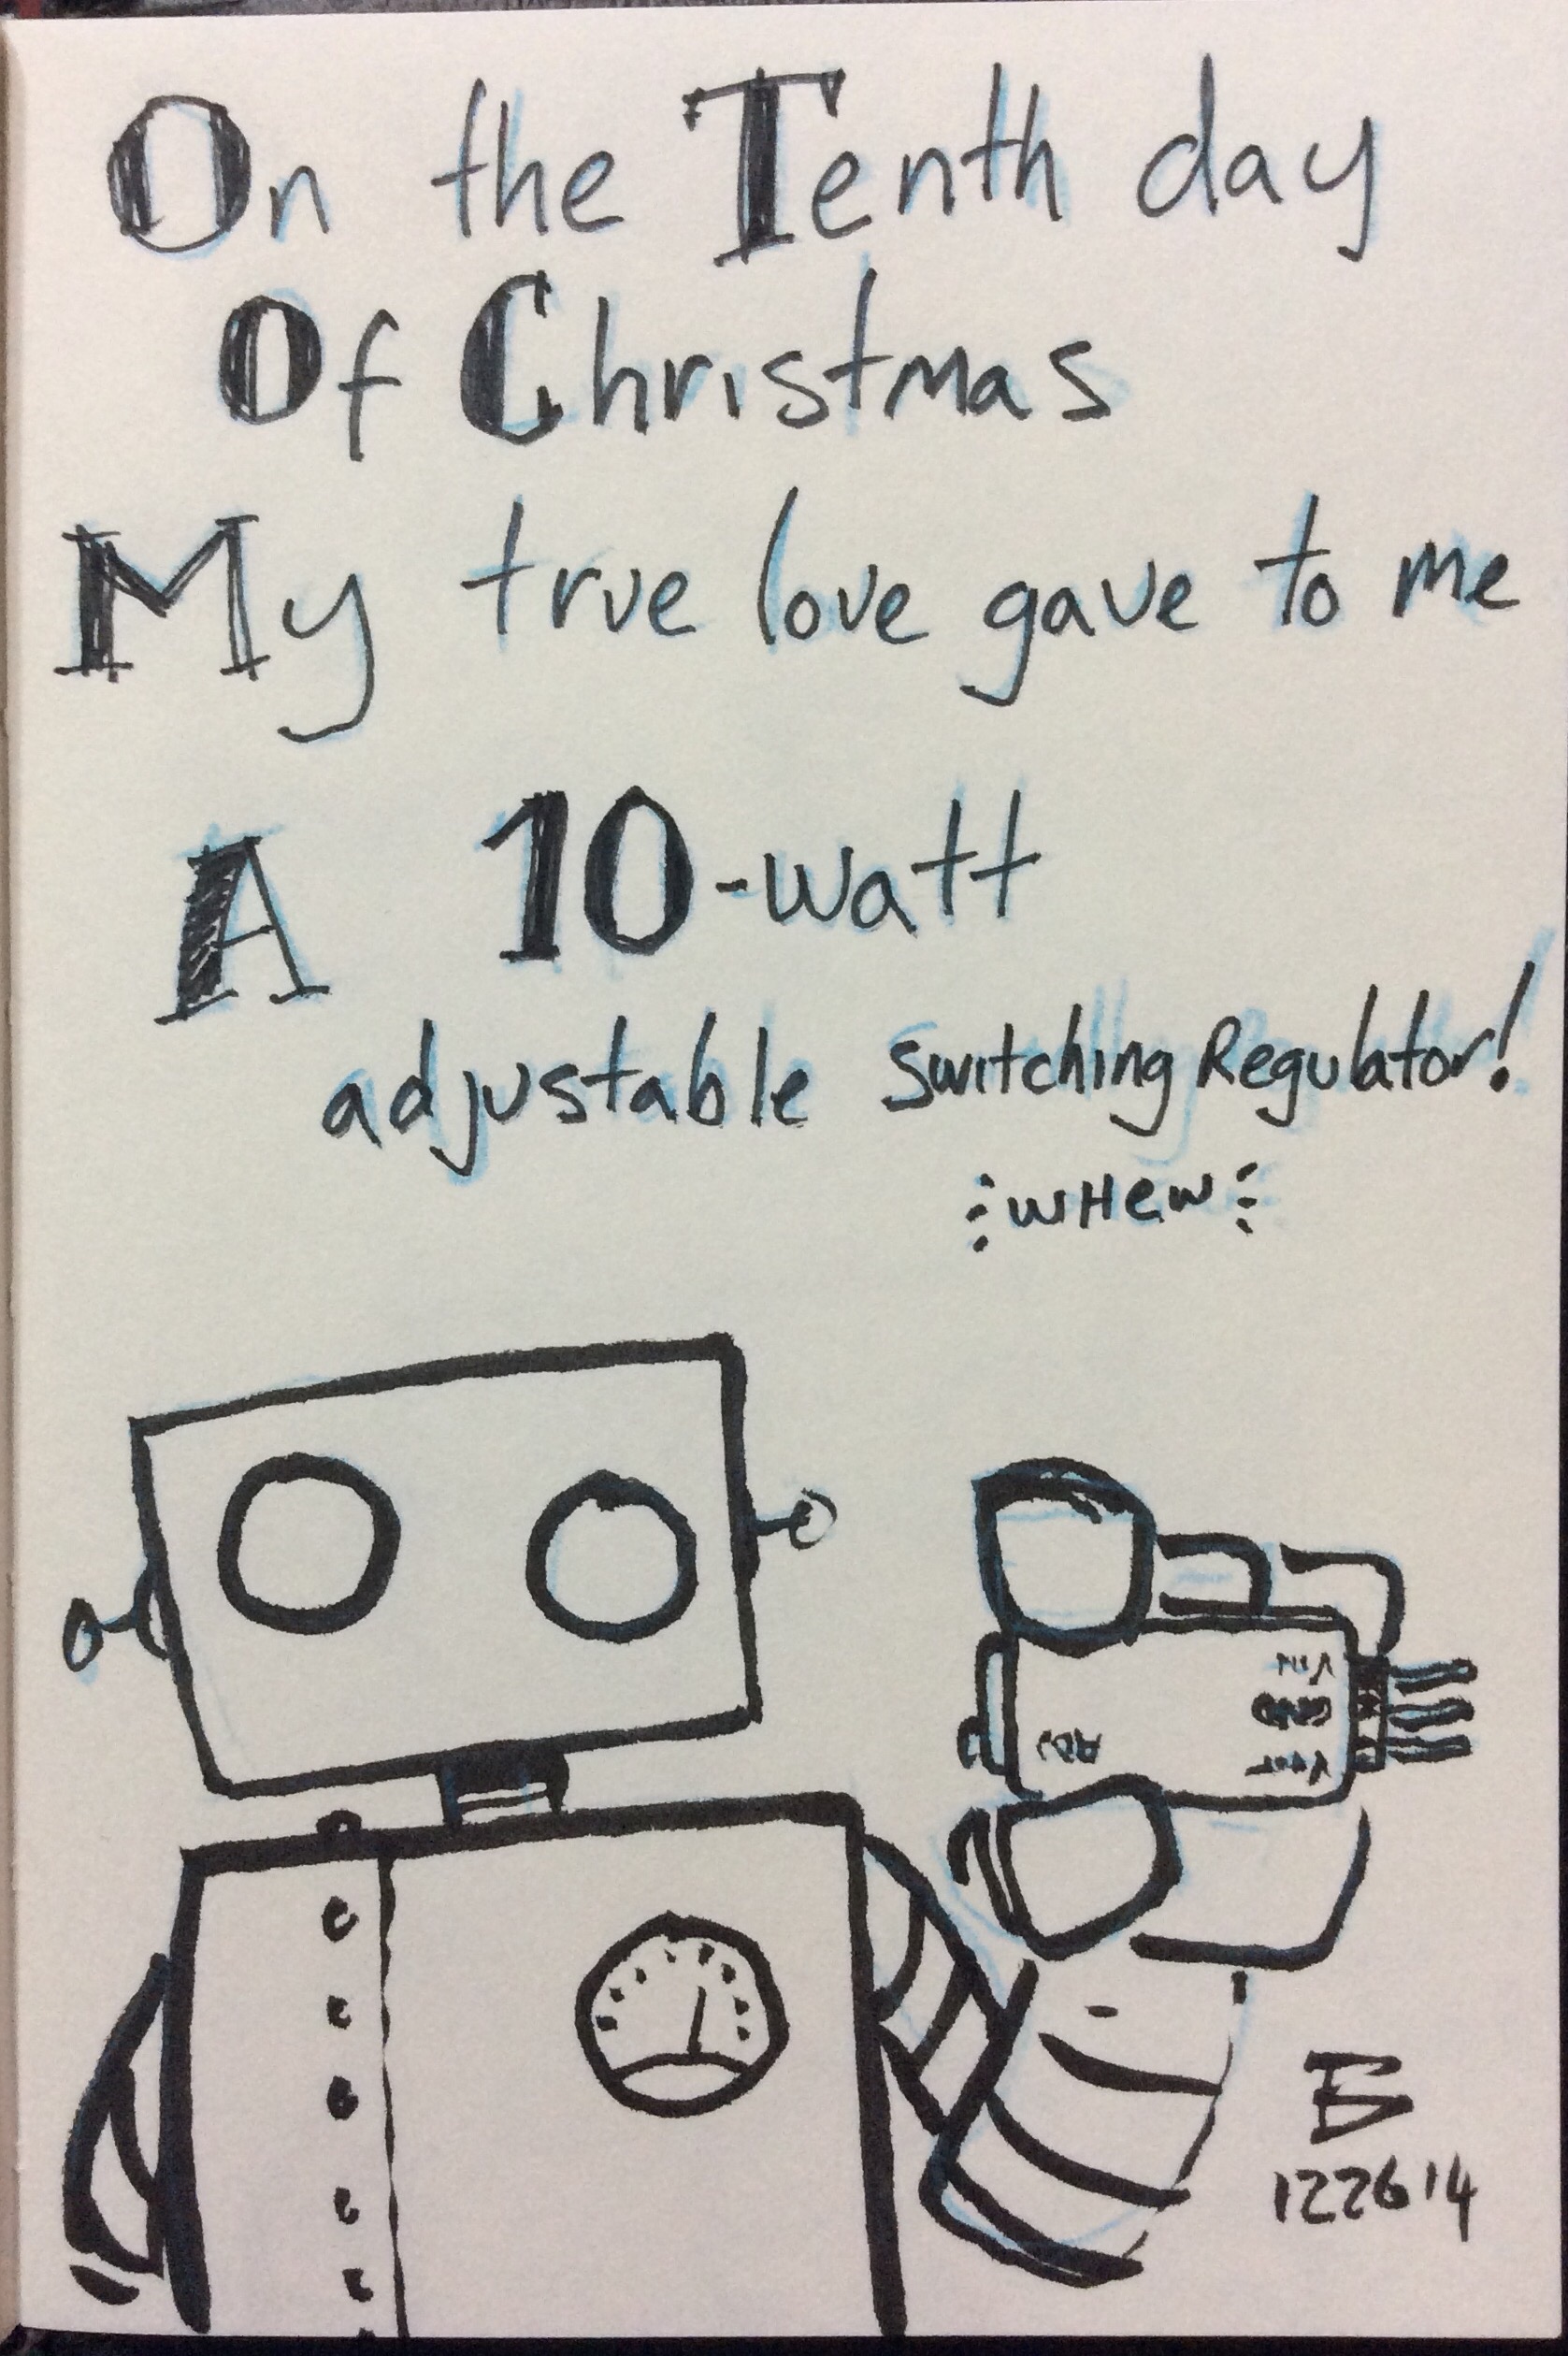 On the Tenth day
Of Christmas
My true love gave to me
A 10-watt
adjustable Switching Regulator!
WHew
VIN
GND
ADJ
VOUT
122614